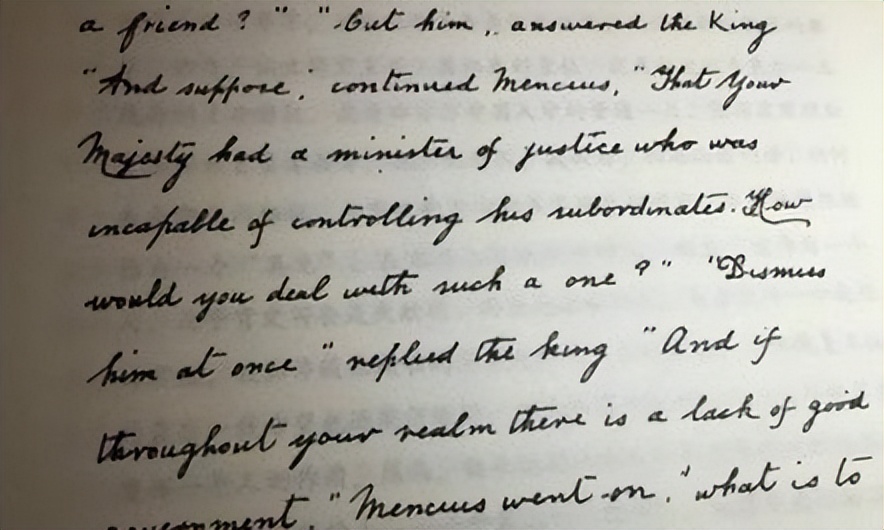 a friend?" "Cut him, answered the King
"And suppose," continued Mencius, "That Your
Majesty had a minister of justice who was
incapable of controlling his subordinates. How
would you deal with such a one?" "Dismiss
him at once" replied the king "And if
throughout your realm there is a lack of good
government," Mencius went on, "what is to